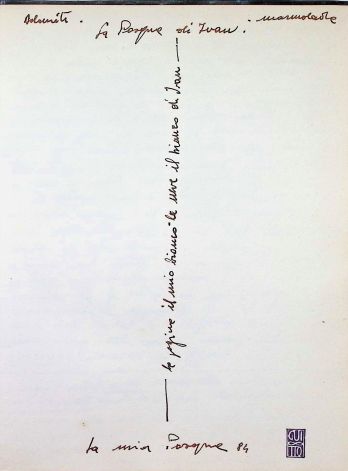 Dolomiti. La Pasqua di Ivan. - marmolada
— la pagina il mio bianco - la neve il bianco di Ivan —
La mia Pasqua 84
GUIDOTTO